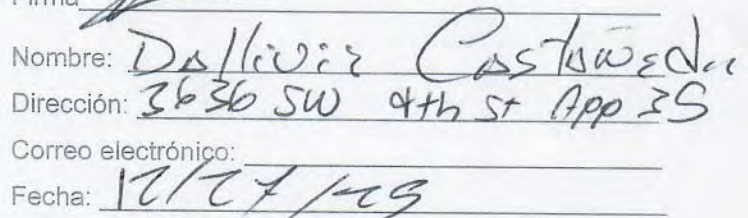 Firma
Nombre: Dallivir Castañeda
Dirección: 3636 SW 4th St App 3S
Correo electrónico:
Fecha: 12/27/